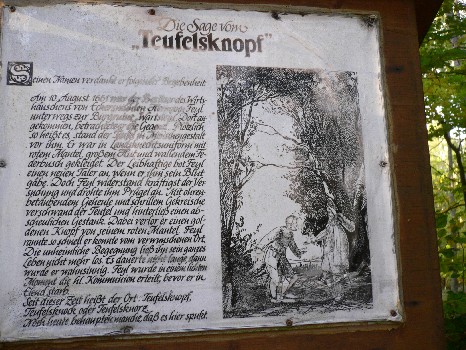 Die Sage vom
„Teufelsknopf"
Seinen Namen verdankt er folgender Begebenheit
Am 10. August war der Besitzer des Wirts-
hauses von Feyl
unterwegs zur Dort an-
gekommen, betrachtete die Gegend. Plötzlich,
so heißt es, stand der in
vor ihm. Er war in Landsknechtsuniform mit
rotem Mantel, großem Hut und wallendem Fe-
derbusch gekleidet. Der Leibhaftige bot Feyl
einen neuen Taler an, wenn er ihm sein Blut
gäbe. Doch Feyl widerstand kräftigst der Ver-
suchung und drohte ihm Prügel an. Mit ohren-
betäubendem Geheule und schrillem Gekreische
verschwand der Teufel und hinterließ einen ab-
scheulichen Gestank. Dabei verlor er einen gol-
denen Knopf von seinem roten Mantel. Feyl
rannte so schnell er konnte vom verwunschenen Ort.
Die unheimliche Begegnung ließ ihn sein ganzes
Leben nicht mehr los. Es dauerte nicht lange, dann
wurde er wahnsinnig. Feyl wurde in einem lichten
Moment die hl. Kommunion erteilt, bevor er in
Elend starb.
Seit dieser Zeit heißt der Ort „Teufelsknopf,
Teufelsknock oder Teufelsknorz.
Noch heute behaupten manche, daß es hier spukt.